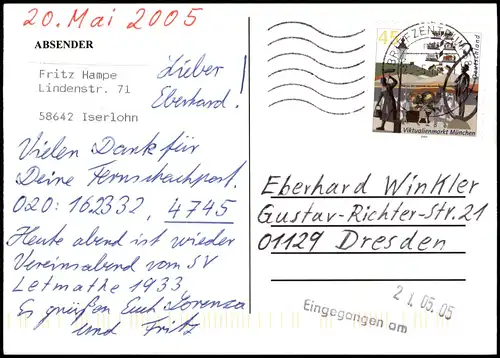 20. Mai 2005
ABSENDER
Fritz Hampe
Lindenstr. 71
58642 Iserlohn
Lieber
Eberhard!
Vielen Dank für
Deine Fernschachpost.
020: 162332, 4745
Heute abend ist wieder
Vereinsabend vom SV
Letmathe 1933
Es grüßen Euch Lorenza
und Fritz
45
Deutschland
Viktualienmarkt München
BRIEFZENTRUM
Eberhard Winkler
Gustav-Richter-Str. 21
01129 Dresden
21.05.05
Eingegangen am